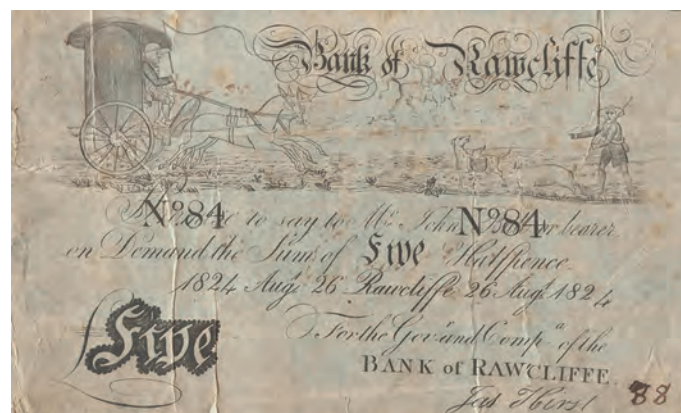 Bank of Rawcliffe
Nº84 to say to Mr. John Nº84 or bearer
on Demand the Sum of Five Halfpence
1824 Augt 26 Rawcliffe 26 Augt 1824
For the Govr. and Compa. of the
Five
BANK of RAWCLIFFE.
Jas Hirst
88